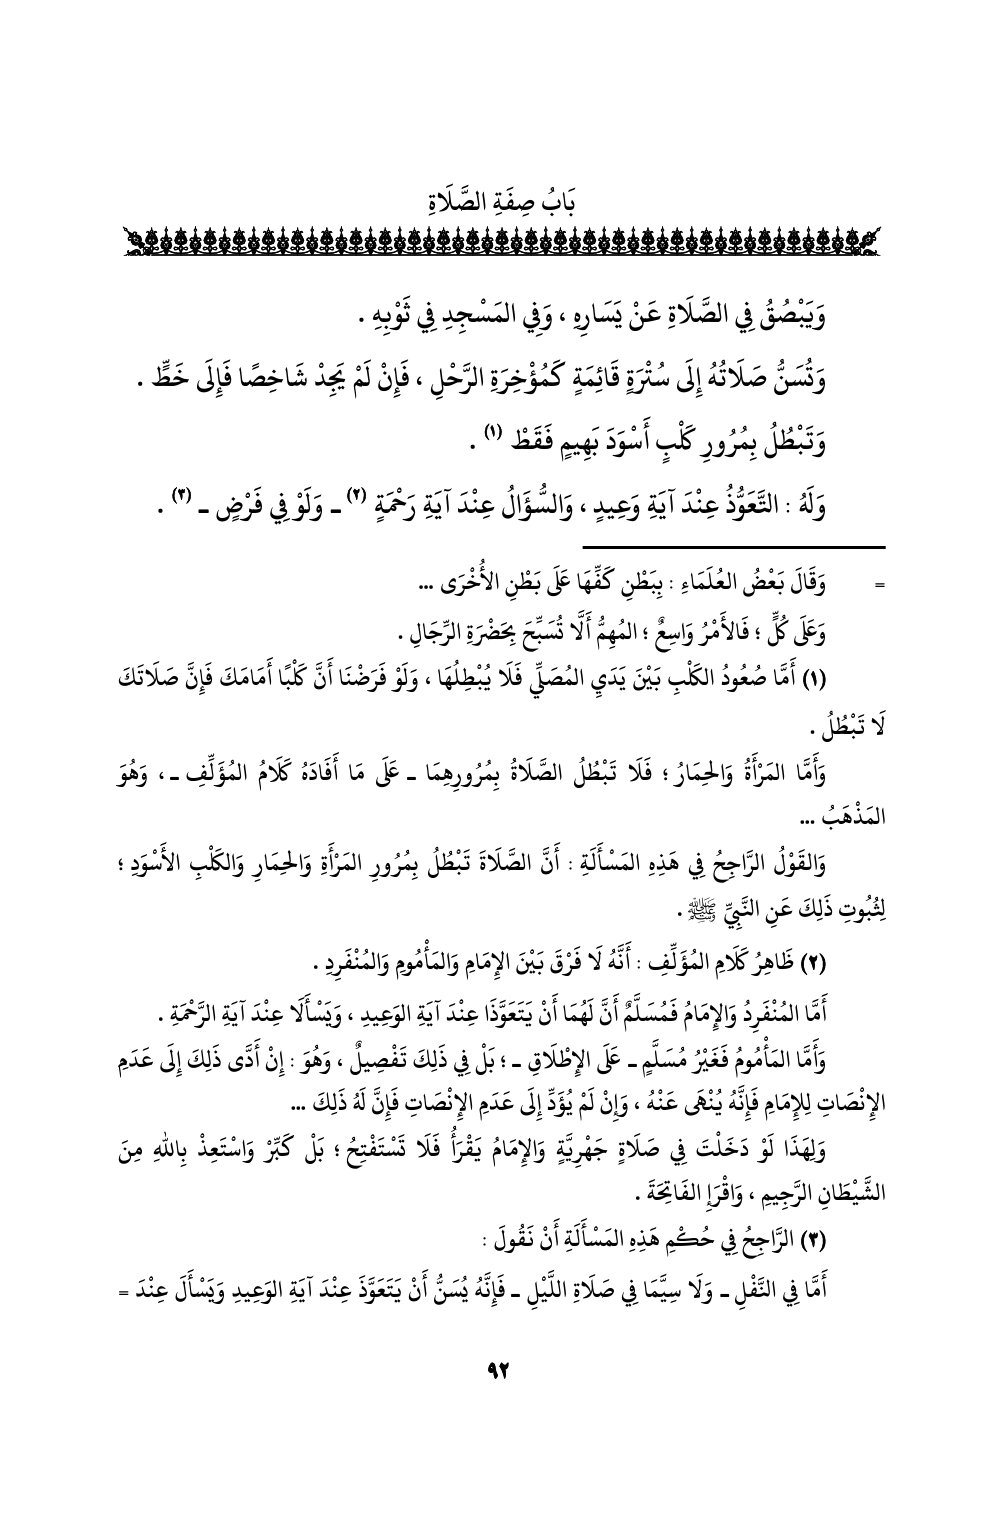 بَابُ صِفَةِ الصَّلَاةِ
وَيَبْصُقُ فِي الصَّلَاةِ عَنْ يَسَارِهِ ، وَفِي المَسْجِدِ فِي ثَوْبِهِ .
وَتُسَنُّ صَلَاتُهُ إِلَى سُتْرَةٍ قَائِمَةٍ كَمُؤْخِرَةِ الرَّحْلِ ، فَإِنْ لَمْ يَجِدْ شَاخِصًا فَإِلَى خَطٍّ .
وَتَبْطُلُ بِمُرُورِ كَلْبٍ أَسْوَدَ بَهِيمٍ فَقَطْ (١) .
وَلَهُ : التَّعَوُّذُ عِنْدَ آيَةِ وَعِيدٍ ، وَالسُّؤَالُ عِنْدَ آيَةِ رَحْمَةٍ (٢) ـ وَلَوْ فِي فَرْضٍ ـ (٣) .
= وَقَالَ بَعْضُ العُلَمَاءِ : بِبَطْنِ كَفِّهَا عَلَى بَطْنِ الأُخْرَى ...
وَعَلَى كُلٍّ ؛ فَالأَمْرُ وَاسِعٌ ؛ المُهِمُّ أَلَّا تُسَبِّحَ بِحَضْرَةِ الرِّجَالِ .
(١) أَمَّا صُعُودُ الكَلْبِ بَيْنَ يَدَيِ المُصَلِّي فَلَا يُبْطِلُهَا ، وَلَوْ فَرَضْنَا أَنَّ كَلْبًا أَمَامَكَ فَإِنَّ صَلَاتَكَ
لَا تَبْطُلُ .
وَأَمَّا المَرْأَةُ وَالحِمَارُ ؛ فَلَا تَبْطُلُ الصَّلَاةُ بِمُرُورِهِمَا ـ عَلَى مَا أَفَادَهُ كَلَامُ المُؤَلِّفِ ـ ، وَهُوَ
المَذْهَبُ ...
وَالقَوْلُ الرَّاجِحُ فِي هَذِهِ المَسْأَلَةِ : أَنَّ الصَّلَاةَ تَبْطُلُ بِمُرُورِ المَرْأَةِ وَالحِمَارِ وَالكَلْبِ الأَسْوَدِ ؛
لِثُبُوتِ ذَلِكَ عَنِ النَّبِيِّ ﷺ .
(٢) ظَاهِرُ كَلَامِ المُؤَلِّفِ : أَنَّهُ لَا فَرْقَ بَيْنَ الإِمَامِ وَالمَأْمُومِ وَالمُنْفَرِدِ .
أَمَّا المُنْفَرِدُ وَالإِمَامُ فَمُسَلَّمٌ أَنَّ لَهُمَا أَنْ يَتَعَوَّذَا عِنْدَ آيَةِ الوَعِيدِ ، وَيَسْأَلَا عِنْدَ آيَةِ الرَّحْمَةِ .
وَأَمَّا المَأْمُومُ فَغَيْرُ مُسَلَّمٍ ـ عَلَى الإِطْلَاقِ ـ ؛ بَلْ فِي ذَلِكَ تَفْصِيلٌ ، وَهُوَ : إِنْ أَدَّى ذَلِكَ إِلَى عَدَمِ
الإِنْصَاتِ لِلإِمَامِ فَإِنَّهُ يُنْهَى عَنْهُ ، وَإِنْ لَمْ يُؤَدِّ إِلَى عَدَمِ الإِنْصَاتِ فَإِنَّ لَهُ ذَلِكَ ...
وَلِهَذَا لَوْ دَخَلْتَ فِي صَلَاةٍ جَهْرِيَّةٍ وَالإِمَامُ يَقْرَأُ فَلَا تَسْتَفْتِحُ ؛ بَلْ كَبِّرْ وَاسْتَعِذْ بِاللهِ مِنَ
الشَّيْطَانِ الرَّجِيمِ ، وَاقْرَإِ الفَاتِحَةَ .
(٣) الرَّاجِحُ فِي حُكْمِ هَذِهِ المَسْأَلَةِ أَنْ نَقُولَ :
أَمَّا فِي النَّفْلِ ـ وَلَا سِيَّمَا فِي صَلَاةِ اللَّيْلِ ـ فَإِنَّهُ يُسَنُّ أَنْ يَتَعَوَّذَ عِنْدَ آيَةِ الوَعِيدِ وَيَسْأَلَ عِنْدَ =
٩٢